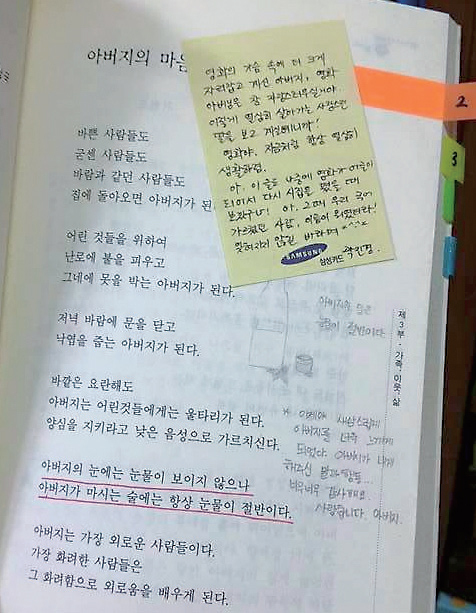 아버지의 마음
바쁜 사람들도
굳센 사람들도
바람과 같던 사람들도
집에 돌아오면 아버지가 된
어린 것들을 위하여
난로에 불을 피우고
그네에 못을 박는 아버지가 된다.
저녁 바람에 문을 닫고
낙엽을 줍는 아버지가 된다.
바깥은 요란해도
아버지는 어린것들에게는 울타리가 된다.
양심을 지키라고 낮은 음성으로 가르치신다.
아버지의 눈에는 눈물이 보이지 않으나
아버지가 마시는 술에는 항상 눈물이 절반이다.
아버지는 가장 외로운 사람들이다.
가장 화려한 사람들은
그 화려함으로 외로움을 배우게 된다.
영화의 가슴 속에 더 크게
자리잡고 계신 아버지, 영화
아버님은 참 자랑스러우실거야.
이렇게 열심히 살아가는 사랑스런
딸을 보고 계실테니까!
영화야, 지금처럼 항상 열심히
생활하렴.
아, 이 글도 나중에 영화가 어른이
되어서 다시 시집을 폈을 때
보겠구나! 아, 그때 우리 국어
가르쳤던 사람, 이름이 뭐였더라!
잊혀지지 않길 바라며 ^^
SAMSUNG
삼성카드 곽진경.
아버지의 눈은
눈물이 절반이다
제3부·가족, 이웃, 삶
* 이제야 새삼스럽게
아버지를 더욱 느끼게
되었다. 아버지가 내게
하주신 말과 행동...
너무너무 감사해요.
사랑합니다. 아버지.
2
3